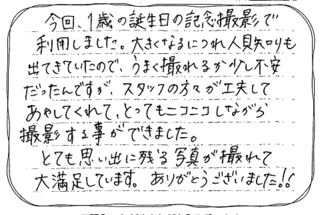 今回、1歳の誕生日の記念撮影で
利用しました。大きくなるにつれ人見知りも
出てきていたので、うまく撮れるか少し不安
だったんですが、スタッフの方々が工夫して
あやしてくれて、とってもニコニコしながら
撮影する事ができました。
とても思い出に残る写真が撮れて
大満足しています。ありがとうございました!!